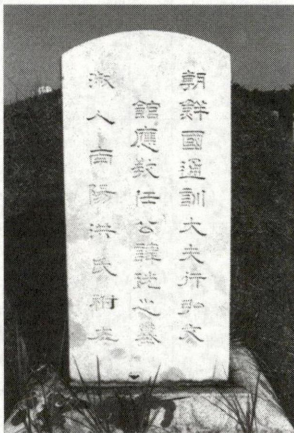 朝鮮國通訓大夫行弘文
館應敎任公諱珖之墓
淑人南陽洪氏祔左